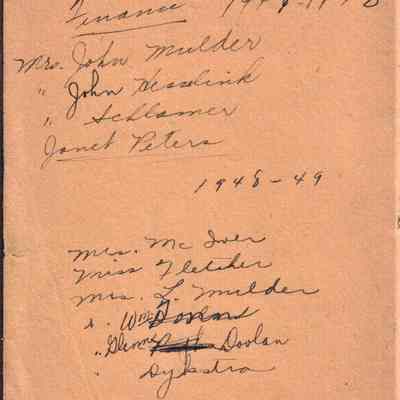 Finance 1949-1950
Mrs. John Mulder
" John Hesselink
" Schlamer
Janet Peters
1948-49
Mrs. Mc Iver
Miss Fletcher
Mrs. L. Mulder
". Wm.
" Glenn Doolan
" Dykstra